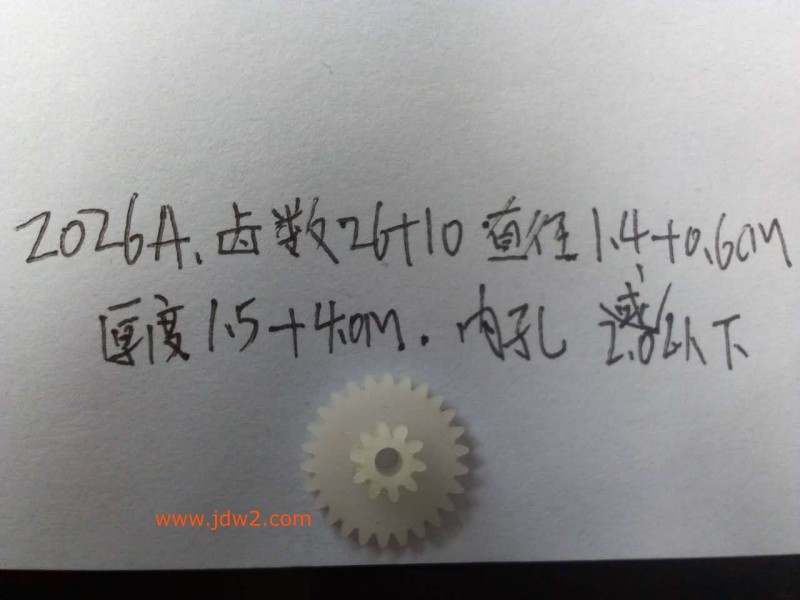 2026A. 齿数26+10 直径1.4+0.6cm
厚度1.5+4.0m. 内孔 2.0以下
www.jdw2.com